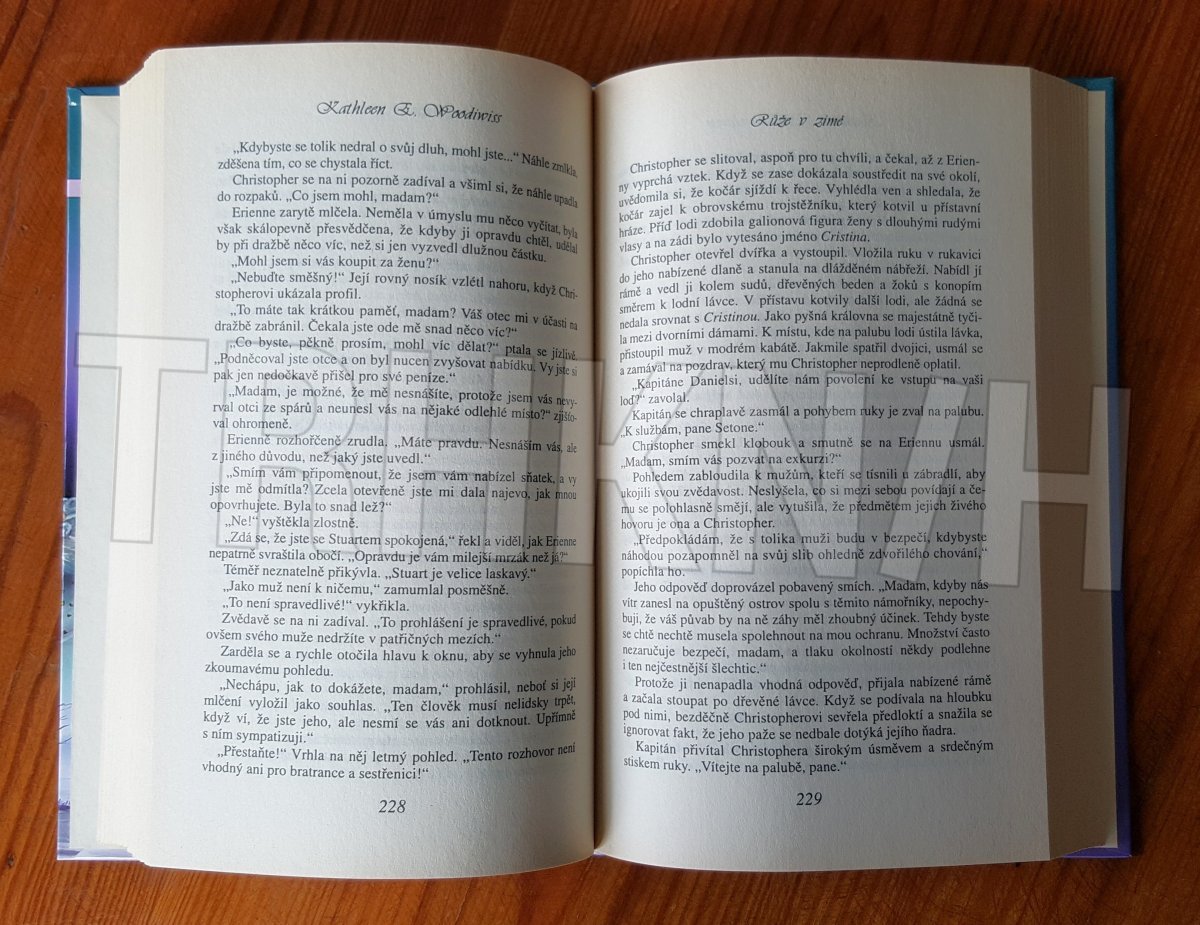 Kathleen E. Woodiwiss
„Kdybyste se tolik nedral o svůj dluh, mohl jste...“ Náhle zmlkla,
zděšena tím, co se chystala říct.
Christopher se na ni pozorně zadíval a všiml si, že náhle upadla
do rozpaků. „Co jsem mohl, madam?“
Erienne zarytě mlčela. Neměla v úmyslu mu něco vyčítat, byla
však skálopevně přesvědčena, že kdyby ji opravdu chtěl, udělal
by při dražbě něco víc, než si jen vyzvedl dlužnou částku.
„Mohl jsem si vás koupit za ženu?“
„Nebuďte směšný!“ Její rovný nosík vzlétl nahoru, když Chri-
stopherovi ukázala profil.
„To máte tak krátkou paměť, madam? Váš otec mi v účasti na
dražbě zabránil. Čekala jste ode mě snad něco víc?“
„Co byste, pěkně prosím, mohl víc dělat?“ ptala se jízlivě.
„Podněcoval jste otce a on byl nucen zvyšovat nabídku. Vy jste si
pak jen nedočkavě přišel pro své peníze.“
„Madam, je možné, že mě nesnášíte, protože jsem vás nevy-
rval otci ze spárů a neunesl vás na nějaké odlehlé místo?“ zjišťo-
val ohromeně.
Erienne rozhořčeně zrudla. „Máte pravdu. Nesnáším vás, ale
z jiného důvodu, než jaký jste uvedl.“
„Smím vám připomenout, že jsem vám nabízel sňatek, a vy
jste mě odmítla? Zcela otevřeně jste mi dala najevo, jak mnou
opovrhujete. Byla to snad lež?“
„Ne!“ vyštěkla zlostně.
„Zdá se, že jste se Stuartem spokojená,“ řekl a viděl, jak Erienne
nepatrně svraštila obočí. „Opravdu je vám milejší mrzák než já?“
Téměř neznatelně přikývla. „Stuart je velice laskavý.“
„Jako muž není k ničemu,“ zamumlal posměšně.
„To není spravedlivé!“ vykřikla.
Zvědavě se na ni zadíval. „To prohlášení je spravedlivé, pokud
ovšem svého muže nedržíte v patřičných mezích.“
Zarděla se a rychle otočila hlavu k oknu, aby se vyhnula jeho
zkoumavému pohledu.
„Nechápu, jak to dokážete, madam,“ prohlásil, neboť si její
mlčení vyložil jako souhlas. „Ten člověk musí nelidsky trpět,
když ví, že jste jeho, ale nesmí se vás ani dotknout. Upřímně
s ním sympatizuji.“
„Přestaňte!“ Vrhla na něj letmý pohled. „Tento rozhovor není
vhodný ani pro bratrance a sestřenici!“
228
Růže v zimě
Christopher se slitoval, aspoň pro tu chvíli, a čekal, až z Erien-
ny vyprchá vztek. Když se zase dokázala soustředit na své okolí,
uvědomila si, že kočár sjíždí k řece. Vyhlédla ven a shledala, že
kočár zajel k obrovskému trojstěžníku, který kotvil u přístavní
hráze. Příď lodi zdobila galionová figura ženy s dlouhými rudými
vlasy a na zádi bylo vytesáno jméno Cristina.
Christopher otevřel dvířka a vystoupil. Vložila ruku v rukavici
do jeho nabízené dlaně a stanula na dlážděném nábřeží. Nabídl jí
rámě a vedl ji kolem sudů, dřevěných beden a žoků s konopím
směrem k lodní lávce. V přístavu kotvily další lodi, ale žádná se
nedala srovnat s Cristinou. Jako pyšná královna se majestátně tyči-
la mezi dvorními dámami. K místu, kde na palubu lodi ústila lávka,
přistoupil muž v modrém kabátě. Jakmile spatřil dvojici, usmál se
a zamával na pozdrav, který mu Christopher neprodleně oplatil.
„Kapitáne Danielsi, udělíte nám povolení ke vstupu na vaši
loď?“ zavolal.
Kapitán se chraplavě zasmál a pohybem ruky je zval na palubu.
„K službám, pane Setone.“
Christopher smekl klobouk a smutně se na Eriennu usmál.
„Madam, smím vás pozvat na exkurzi?“
Pohledem zabloudila k mužům, kteří se tísnili u zábradlí, aby
ukojili svou zvědavost. Neslyšela, co si mezi sebou povídají a če-
mu se polohlasně smějí, ale vytušila, že předmětem jejich živého
hovoru je ona a Christopher.
„Předpokládám, že s tolika muži budu v bezpečí, kdybyste
náhodou pozapomněl na svůj slib ohledně zdvořilého chování,“
popíchla ho.
Jeho odpověď doprovázel pobavený smích. „Madam, kdyby nás
vítr zanesl na opuštěný ostrov spolu s těmito námořníky, nepochy-
buji, že váš půvab by na ně záhy měl zhoubný účinek. Tehdy byste
se chtě nechtě musela spolehnout na mou ochranu. Množství často
nezaručuje bezpečí, madam, a tlaku okolností někdy podlehne
i ten nejčestnější šlechtic.“
Protože ji nenapadla vhodná odpověď, přijala nabízené rámě
a začala stoupat po dřevěné lávce. Když se podívala na hloubku
pod nimi, bezděčně Christopherovi sevřela předloktí a snažila se
ignorovat fakt, že jeho paže se nedbale dotýká jejího ňadra.
Kapitán přivítal Christophera širokým úsměvem a srdečným
stiskem ruky. „Vítejte na palubě, pane.“
229
TRHKNIH